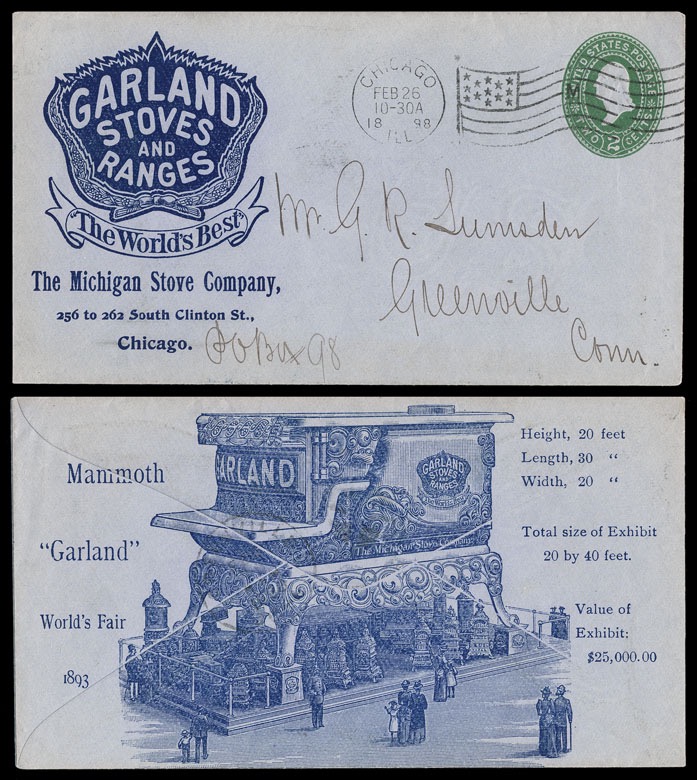 GARLAND
STOVES
AND
RANGES
"The World's Best"
The Michigan Stove Company,
256 to 262 South Clinton St.,
Chicago.
P O Box 98
CHICAGO
FEB 26
10-30A
18 98
ILL
M
UNITED STATES POSTAGE
TWO 2 CENTS
Mr. G. R. Lumsden
Greenville
Conn.
Mammoth
"Garland"
World's Fair
1893
GARLAND
GARLAND
STOVES
AND
RANGES
The Michigan Stove Company
Height, 20 feet
Length, 30 "
Width, 20 "
Total size of Exhibit
20 by 40 feet.
Value of
Exhibit:
$25,000.00